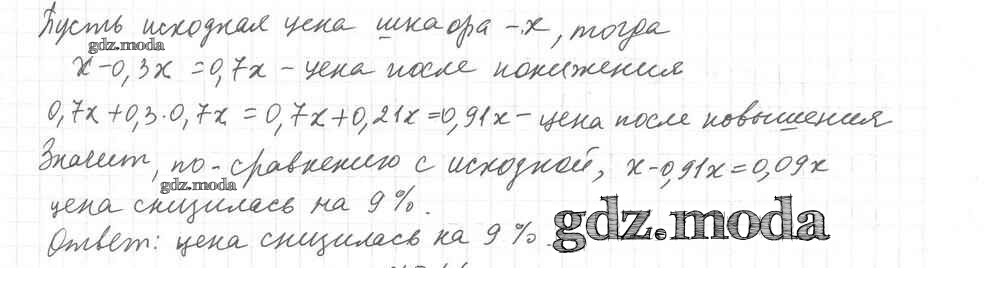 Пусть исходная цена шкафа - x, тогда
gdz.moda
x-0,3x = 0,7x - цена после понижения
0,7x+0,3·0,7x = 0,7x+0,21x=0,91x - цена после повышения
Значит, по-сравнению с исходной, x-0,91x=0,09x
gdz.moda
цена снизилась на 9%.
Ответ: цена снизилась на 9%.
gdz.moda